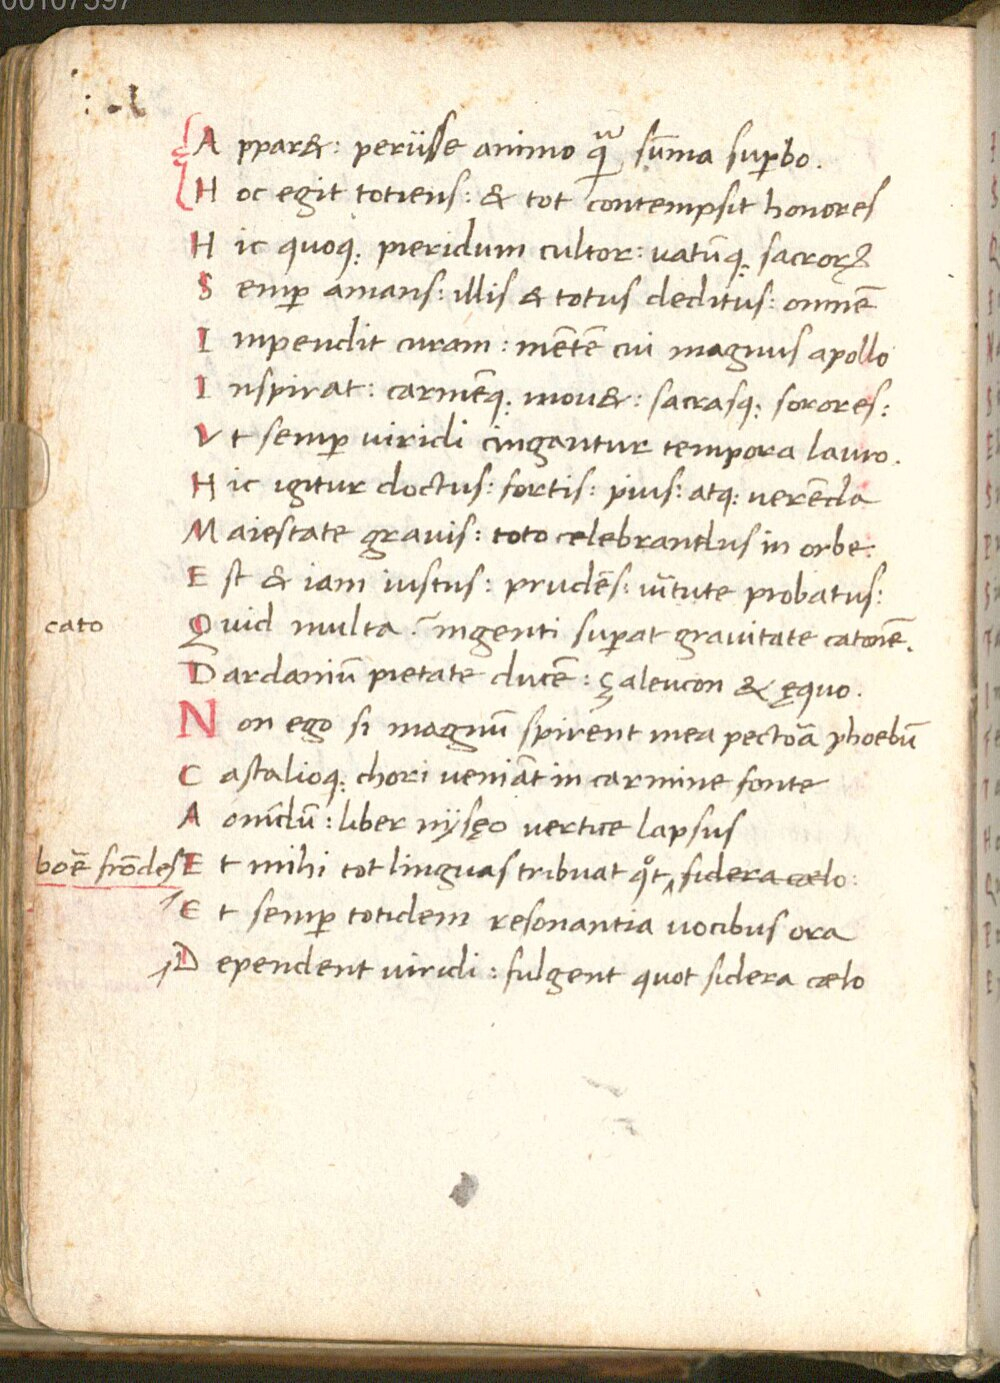 Appar&: periisse animo quā sūma suꝑbo.
Hoc egit totiens: & tot contempsit honores
Hic quoq; pieridum cultor: uatūq; sacroꝝ
Semꝑ amans: illis & totus deditus: omnē
Impendit curam: mētē cui magnus apollo
Inspirat: carmēq; mou&: sacrasq; sorores:
Vt semꝑ uiridi cingantur tempora lauro.
Hic igitur doctus: fortis: pius: atq; uerēda
Maiestate grauis: toto celebrandus in orbe:
Est & iam iustus: prudēs: uītute probatus:
cato
Quid multa? īngenti suꝑat grauitate catonē.
Dardaniū pietate ducē: çaleucon & ęquo.
Non ego si magnū spirent mea pectoā phoebū
Castalioq; chori ueniāt in carmine fonte
Aonidū: liber nysęo uertice lapsus
boē frōdes
Et mihi tot linguas tribuat qͦt sidera cælo:
Et semꝑ totidem resonantia uocibus ora
Dependent uiridi: fulgent quot sidera cælo